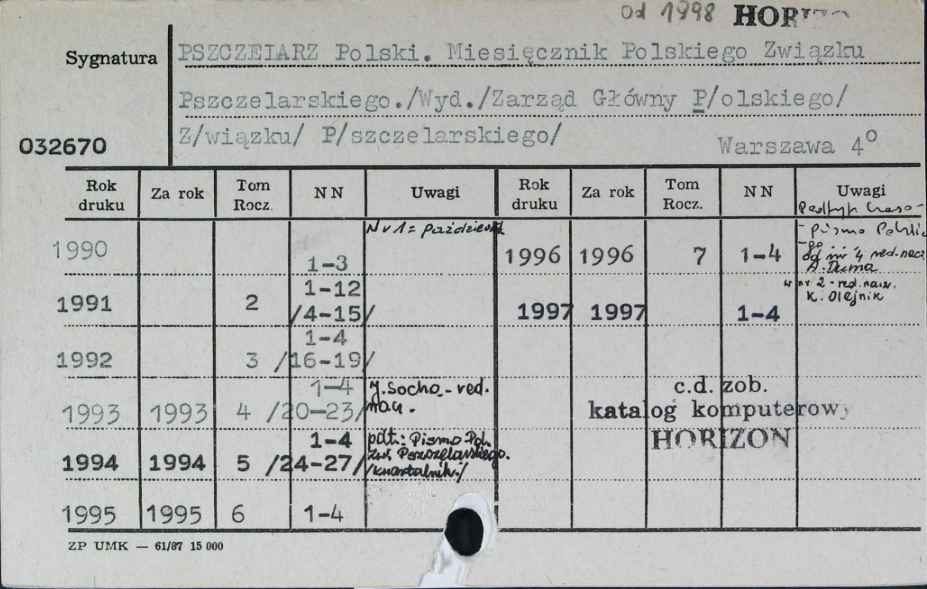 od 1998 HOR
Sygnatura
PSZCZELARZ Polski. Miesięcznik Polskiego Związku
Pszczelarskiego./Wyd./Zarząd Główny P/olskiego/
Z/wiązku/ P/szczelarskiego/
Warszawa 4°
032670
Rok druku Za rok Tom Rocz. NN Uwagi Rok druku Za rok Tom Rocz. NN Uwagi
1990 1-3 Nr 1 = październik
1991 2 1-12 /4-15/
1992 3 1-4 /16-19/
1993 1993 4 1-4 /20-23/ J. Socha - red. nacz.
1994 1994 5 1-4 /24-27/ pdt.: Pismo Pol. Zw. Pszczelarskiego. /kwartalnik/
1995 1995 6 1-4
1996 1996 7 1-4
Pismo
od nr 4 red. nacz.
A. Duma
1997 1997 1-4
w nr 2 - red. nacz.
K. Olejnik
c.d. zob.
katalog komputerowy
HORIZON
ZP UMK — 61/87 15 000